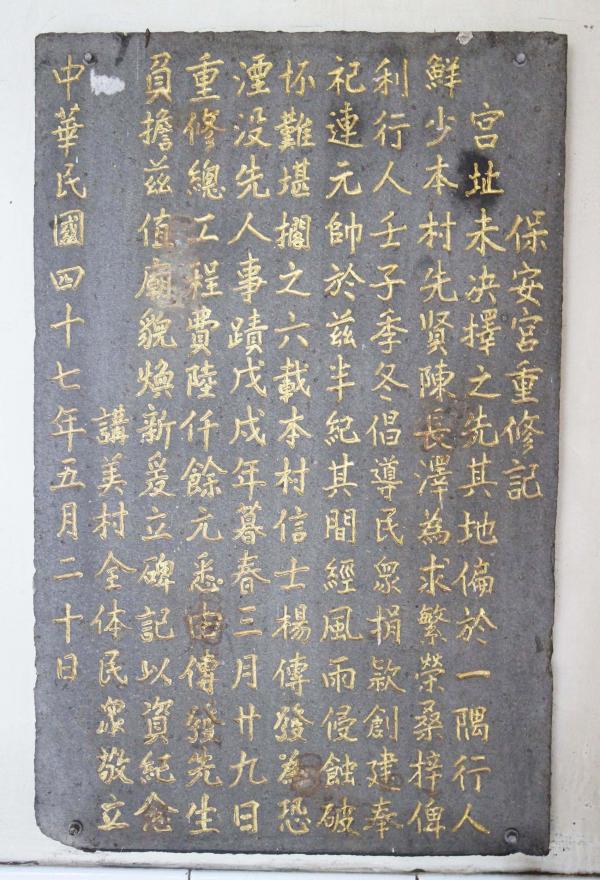 保安宮重修記
宮址未決擇之先其地偏於一隅行人
鮮少本村先贤陳長澤為求繁榮桑梓俾
利行人壬子季冬倡導民眾捐欵創建奉
祀連元帥於兹半紀其間經風雨侵蝕破
坏難堪擱之六載本村信士楊傳發為恐
湮没先人事蹟戊戌年暮春三月廿九日
重修總工程費陸仟餘元悉由傳發先生
負擔兹值廟貌煥新爰立碑記以資紀念
講美村全体民眾敬立
中華民國四十七年五月二十日